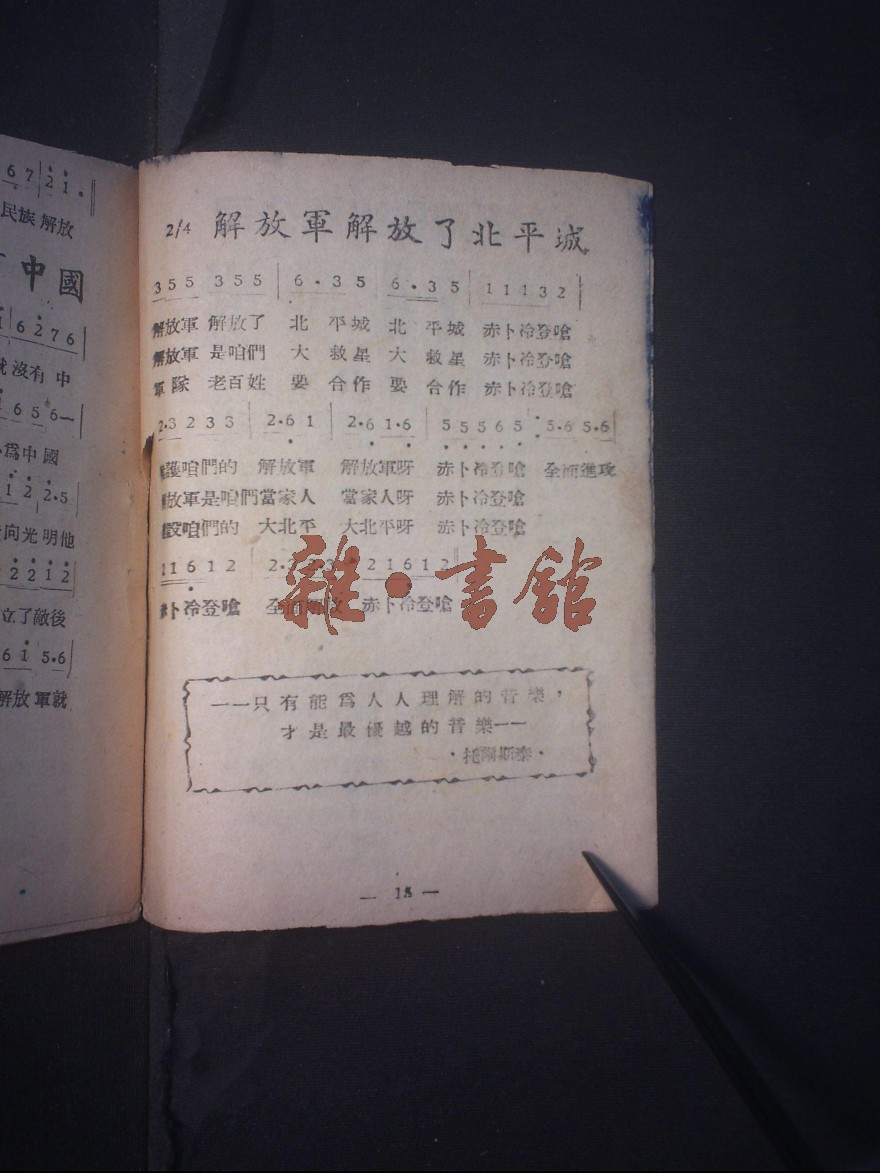 6 7 2 1 .
民族 解放
中國
6 2 7 6
沒有 中
6 5 6 —
爲中國
1 2 2·5
向光明他
2 2 1 2
立了敵後
6 1 5·6
解放軍就
2/4 解放軍解放了北平城
3 5 5 3 5 5 | 6 · 3 5 6 · 3 5 | 1 1 1 3 2 |
解放軍 解放了 北 平城 北 平城 赤卜冷登嗆
解放軍 是咱們 大 救星 大 救星 赤卜冷登嗆
軍隊 老百姓 要 合作 要 合作 赤卜冷登嗆
2·3 2 3 3 | 2·6 1 | 2·6 1·6 | 5 5 5 6 5 | 5·6 5·6 |
護咱們的 解放軍 解放軍呀 赤卜冷登嗆 全面進攻
放軍是咱們當家人 當家人呀 赤卜冷登嗆
設咱們的 大北平 大北平呀 赤卜冷登嗆
1 1 6 1 2 | 2·3 2·3 | 2 1 6 1 2 ||
卜冷登嗆 全面解放 赤卜冷登嗆
雜·書館
——只有能爲人人理解的音樂，
才是最優越的音樂——
·托爾斯泰·